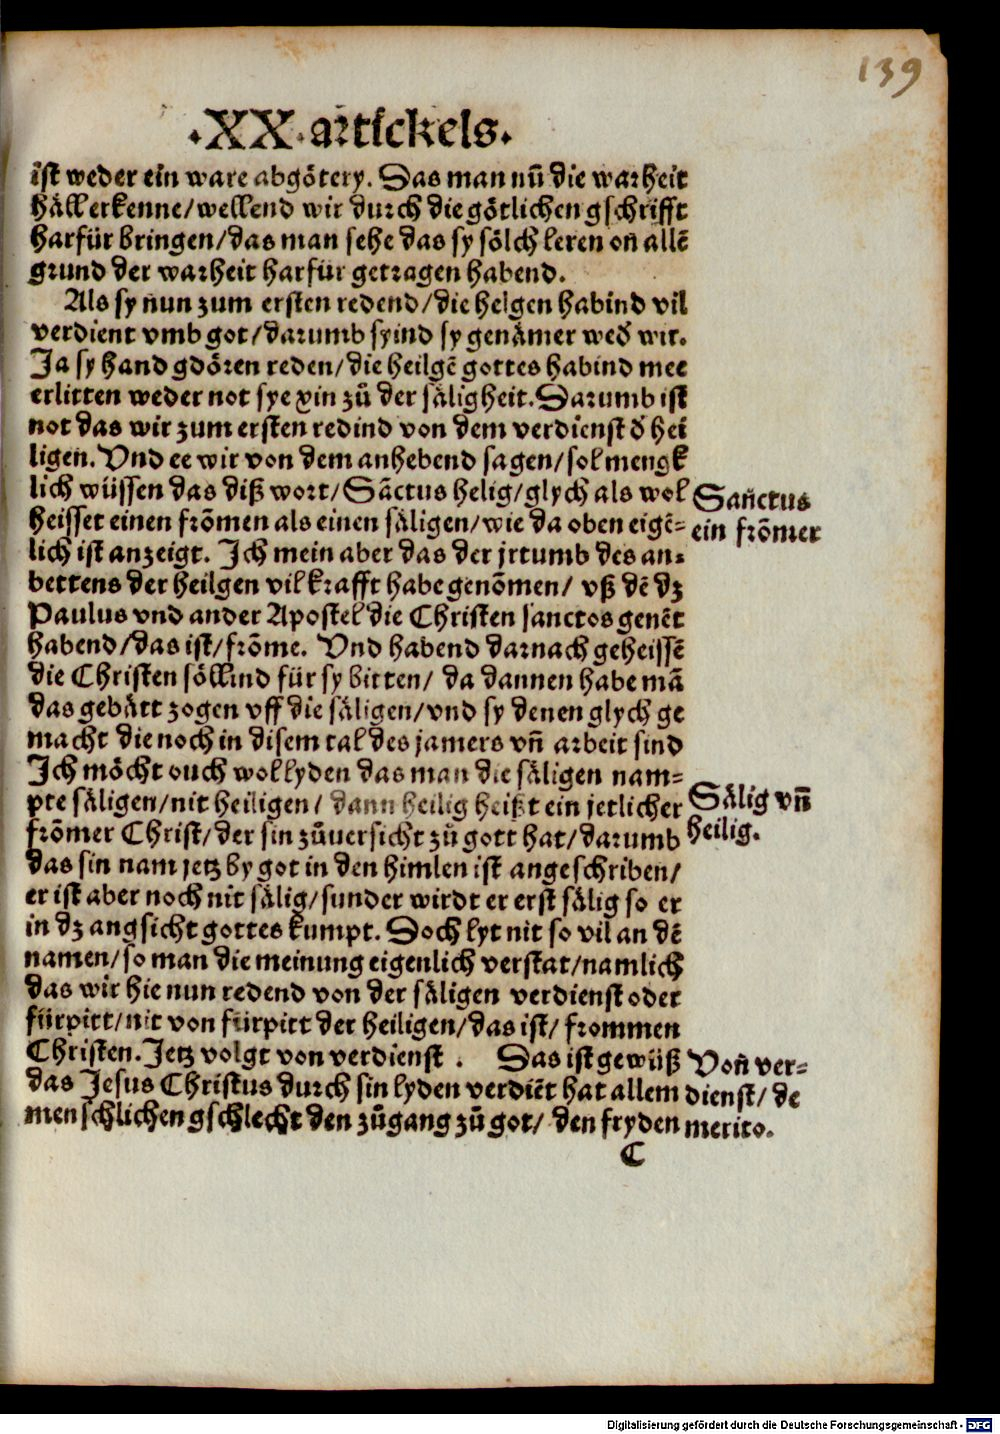 139
·XX·artickels·
ist weder ein ware abgötery. Das man nun̄ die warheit
häll erkenne/wellend wir durch die götlichen gschrifft
harfür bringen/das man sehe das sy sölch leren on̄ allē
grund der warheit harfür getragen habend.
Als sy nun zum ersten redend/die helgen habind vil
verdient vmb got/darumb syind sy genämer wed' wir.
Ja sy hand gdören reden/die heilgē gottes habind mee
erlitten weder not sye xin zů der säligheit. Darumb ist
not das wir zum ersten redind von dem verdienst d' hei
ligen. Vnd ee wir von dem anhebend sagen/sol mengk
lich wüssen das diß wort/Sāctus helig/glych als wol
heisset einen frōmen als einen säligen/wie da oben eigē-
lich ist anzeigt. Ich mein aber das der jrtumb des an-
bettens der heilgen vil krafft habe genōmen/ vß dē dz
Paulus vnd ander Apostel die Christen sanctos genēt
habend/das ist/frōme. Vnd habend darnach geheissē
die Christen söllind für sy bitten/ da dannen habe mā
das gebätt zogen vff die säligen/vnd sy denen glych ge
macht die noch in disem tal des jamers vn̄ arbeit sind
Ich möcht ouch wol lyden das man die säligen nam-
pte säligen/nit heiligen/ dann heilig heißt ein jetlicher
frōmer Christ/der sin zůuersicht zů gott hat/darumb
das sin nam jetz by got in den himlen ist angeschriben/
er ist aber noch nit sälig/sunder wirdt er erst sälig so er
in dz angsicht gottes kumpt. Doch lyt nit so vil an dē
namen/so man die meinung eigenlich verstat/namlich
das wir hie nun redend von der säligen verdienst oder
fürpitt/nit von fürpitt der heiligen/das ist/ frommen
Christen. Jetz volgt von verdienst . Das ist gewüß
das Jesus Christus durch sin lyden verdiēt hat allem
menschlichen gschlecht den zůgang zů got/ den fryden
C
San̄ctus
ein frōmer
Sälig vn̄
heilig.
Von̄ ver-
dienst/ de
merito.
Digitalisierung gefördert durch die Deutsche Forschungsgemeinschaft - DFG